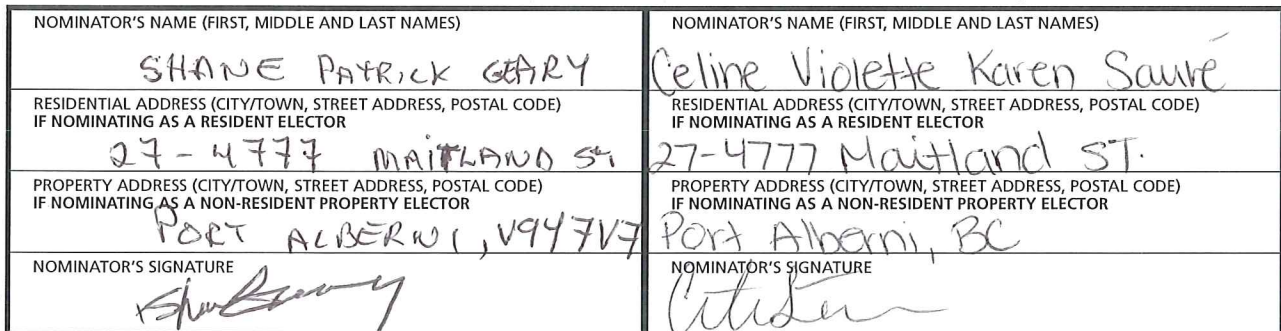 NOMINATOR'S NAME (FIRST, MIDDLE AND LAST NAMES)
SHANE PATRICK GEARY
RESIDENTIAL ADDRESS (CITY/TOWN, STREET ADDRESS, POSTAL CODE)
IF NOMINATING AS A RESIDENT ELECTOR
27-4777 MAITLAND St
PROPERTY ADDRESS (CITY/TOWN, STREET ADDRESS, POSTAL CODE)
IF NOMINATING AS A NON-RESIDENT PROPERTY ELECTOR
PORT ALBERNI, V9Y 7V7
NOMINATOR'S SIGNATURE
NOMINATOR'S NAME (FIRST, MIDDLE AND LAST NAMES)
Celine Violette Karen Sauvé
RESIDENTIAL ADDRESS (CITY/TOWN, STREET ADDRESS, POSTAL CODE)
IF NOMINATING AS A RESIDENT ELECTOR
27-4777 Maitland ST.
PROPERTY ADDRESS (CITY/TOWN, STREET ADDRESS, POSTAL CODE)
IF NOMINATING AS A NON-RESIDENT PROPERTY ELECTOR
Port Alberni, BC
NOMINATOR'S SIGNATURE